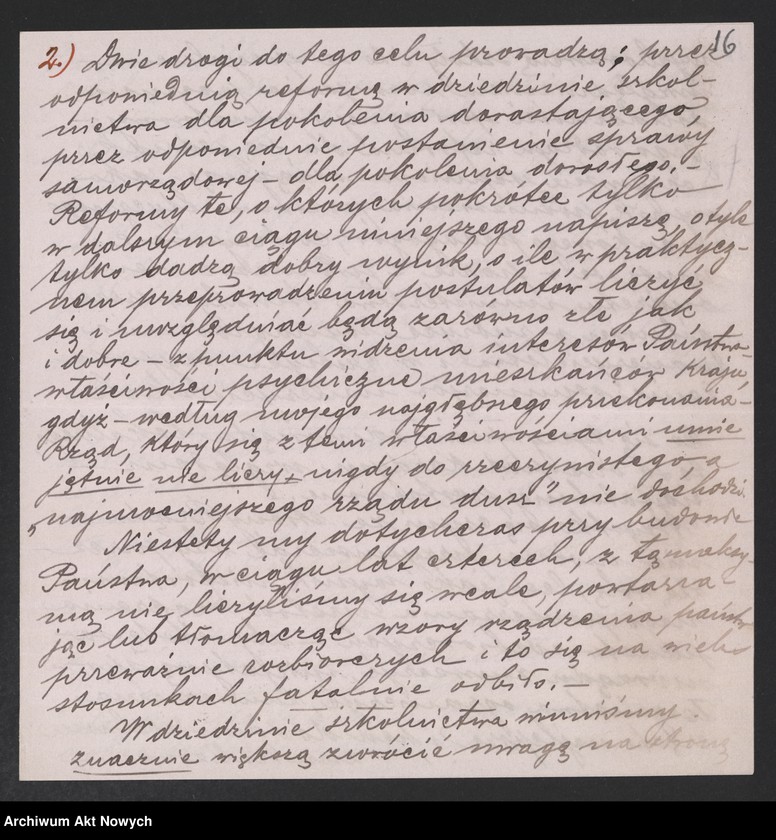 16
2.) Dwie drogi do tego celu prowadzą: przez
odpowiednią reformę w dziedzinie szkol-
nictwa dla pokolenia dorastającego,
przez odpowiednie postawienie sprawy
samorządowej – dla pokolenia dorosłego. –
Reformy te, o których pokrótce tylko
w dalszym ciągu niniejszego napiszę, o tyle
tylko dadzą dobry wynik, o ile w praktycz-
nem przeprowadzeniu postulatów liczyć
się i uwzględniać będą zarówno złe jak
i dobre – z punktu widzenia interesów Państwa –
właściwości psychiczne mieszkańców Kraju,
gdyż – według mojego najgłębszego przekonania –
Rząd, który się z temi właściwościami umie
jętnie nie liczy, – nigdy do rzeczywistego, a
„najmocniejszego rządu dusz" nie dochodzi.
Niestety my dotychczas przy budowie
Państwa, w ciągu lat czterech, z tą maksy-
mą nie liczyliśmy się wcale, powtarza-
jąc lub tłomacząc wzory rządzenia państw
przeważnie rozbiorczych i to się na wielu
stosunkach fatalnie odbiło. –
W dziedzinie szkolnictwa winniśmy
znacznie większą zwrócić uwagę na stronę
Archiwum Akt Nowych